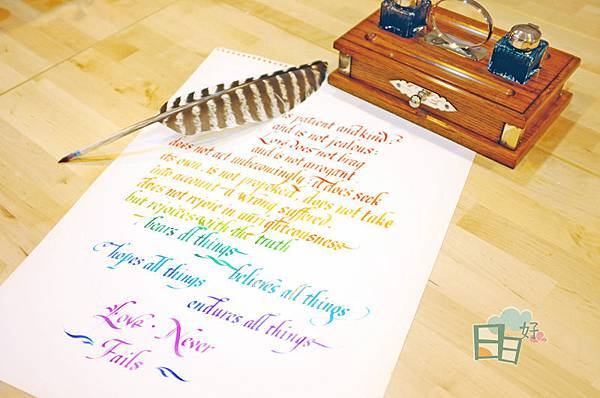 is patient and kind,
and is not jealous;
Love does not brag
and is not arrogant
does not act unbecomingly; it does seek
its own, is not provoked, does not take
into account a wrong suffered,
does not rejoice in unrighteousness
but rejoices with the truth
bears all things
believes all things
hopes all things
endures all things
Love · Never
Fails
日日好